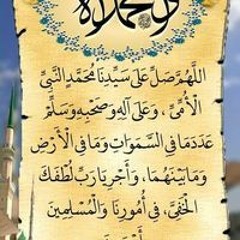 اللَّهُمَّ صَلِّ عَلَى سَيِّدِنَا مُحَمَّدٍ النَّبِيِّ
الْأُمِّيِّ، وَعَلَى آلِهِ وَصَحْبِهِ وَسَلِّمْ
عَدَدَ مَا فِي السَّمَوَاتِ وَمَا فِي الْأَرْضِ
وَمَا بَيْنَهُمَا، وَأَجْرِ يَا رَبِّ لُطْفَكَ
الْخَفِيَّ، فِي أُمُورِنَا وَالْمُسْلِمِينَ